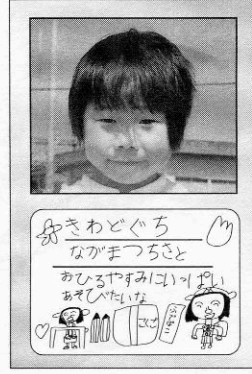 きわどぐち
ながまつちさと
おひるやすみにいっぱい
あそびたいな
こくご